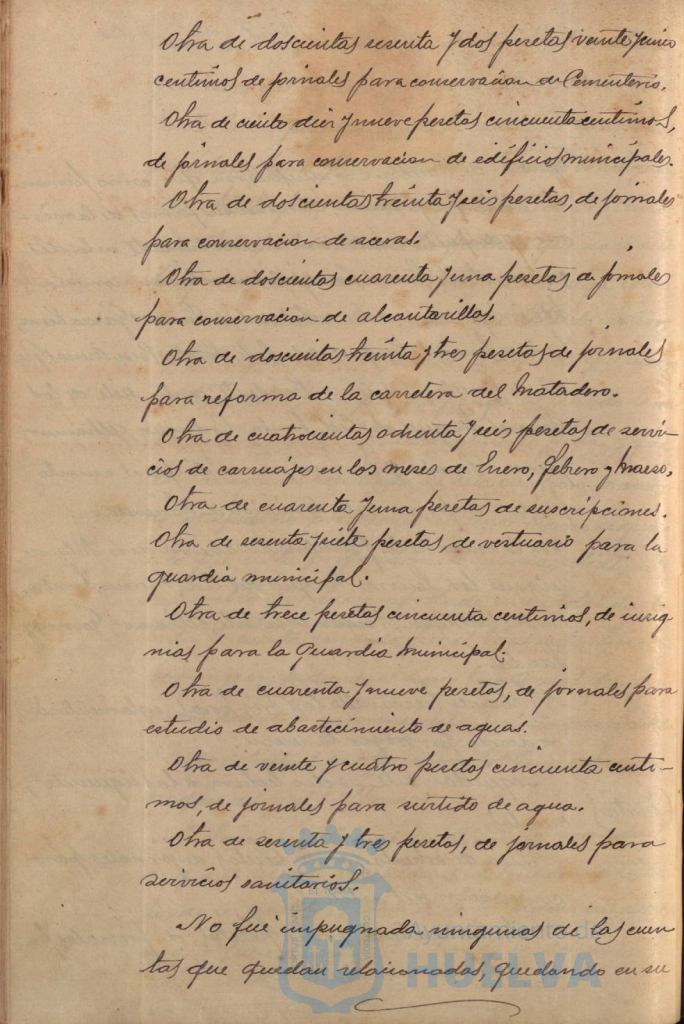 Otra de doscientas sesenta y dos pesetas veinte y cinco
centimos de jornales para conservacion de Cementerio.
Otra de ciento diez y nueve pesetas cincuenta centimos,
de jornales para conservacion de edificios municipales.
Otra de doscientas treinta y seis pesetas, de jornales
para conservacion de aceras.
Otra de doscientas cuarenta y una pesetas de jornales
para conservacion de alcantarillas.
Otra de doscientas treinta y tres pesetas de jornales
para reforma de la carretera del Matadero.
Otra de cuatrocientas ochenta y seis pesetas de servi-
cios de carruajes en los meses de Enero, Febrero y Marzo,
Otra de cuarenta y una pesetas de suscripciones.
Otra de sesenta y siete pesetas, de vestuario para la
guardia municipal.
Otra de trece pesetas cincuenta centimos, de insig
nias para la Guardia Municipal.
Otra de cuarenta y nueve pesetas, de jornales para
estudio de abastecimiento de aguas.
Otra de veinte y cuatro pesetas cincuenta centi-
mos, de jornales para surtido de agua.
Otra de sesenta y tres pesetas, de jornales para
servicios sanitarios.
No fué impugnada ningunas de las cuen
tas que quedan relacionadas, quedando en su
HUELVA